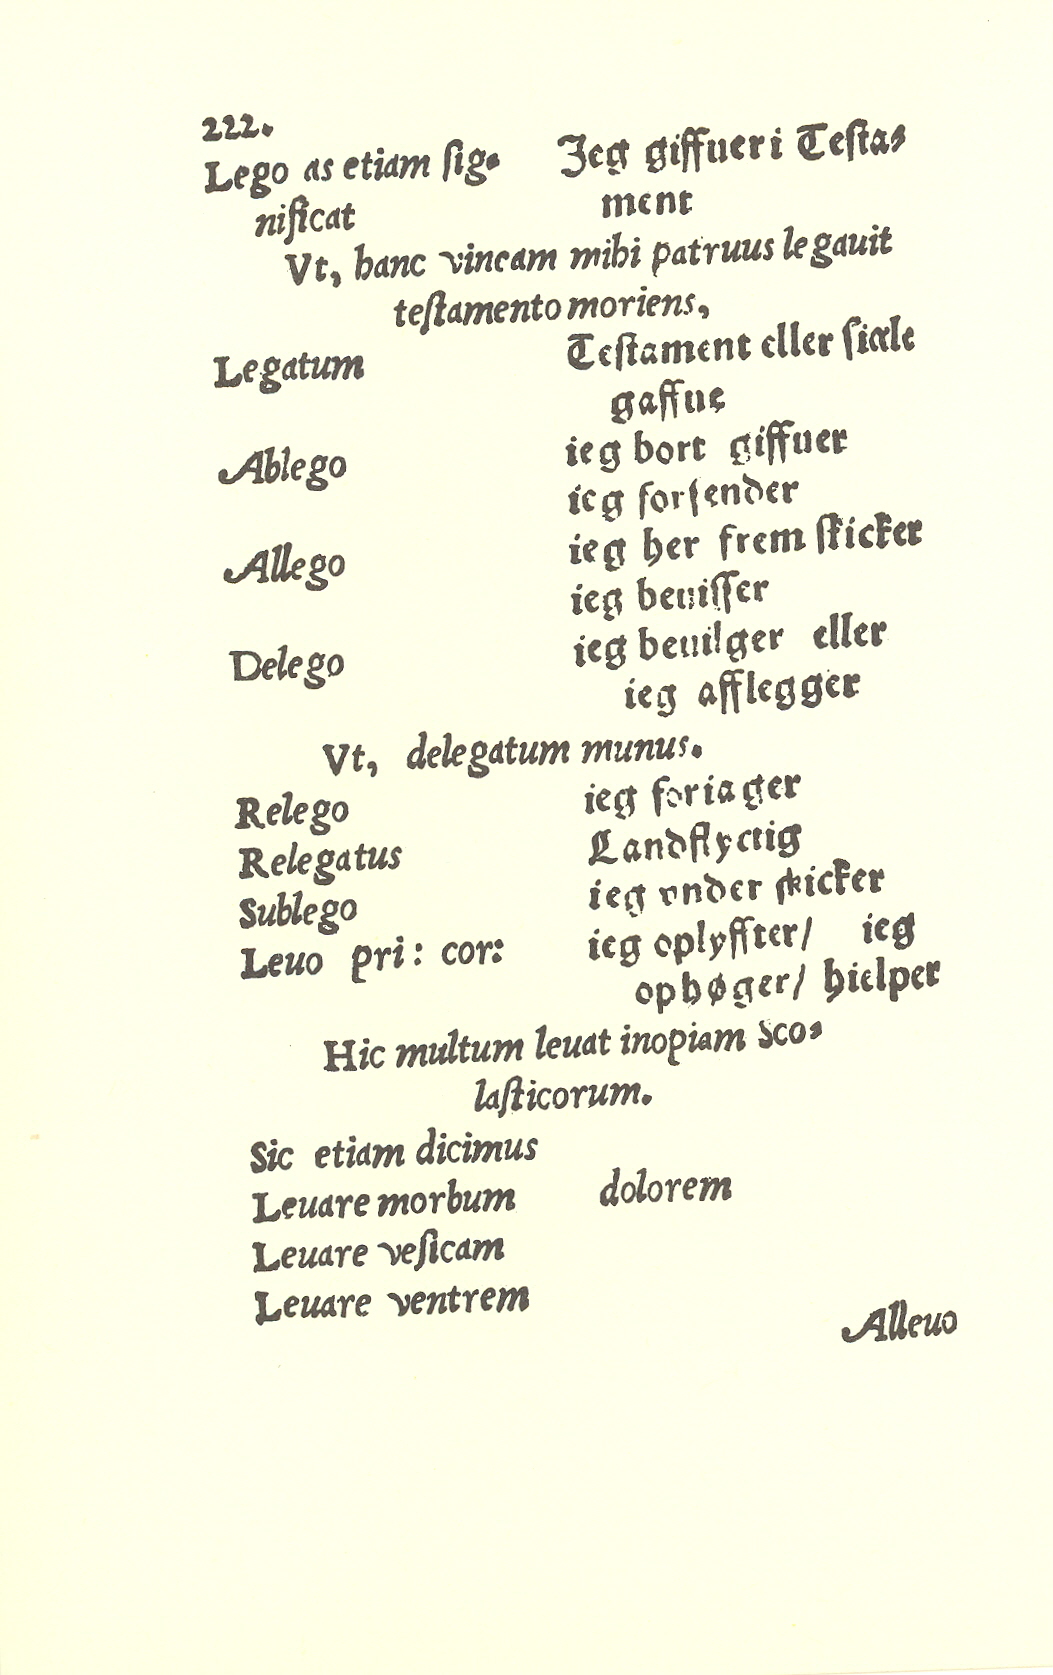 222.
Lego as etiam ſig- Jeg giffueri Teſta-
nificat ment
Vt, hanc vineam mihi patruus legauit
teſtamento moriens,
Legatum Teſtament eller ſiæle
gaffue
Ablego ieg bort giffuer
ieg forſender
Allego ieg her frem ſkicker
ieg beuiſſer
Delego ieg beuilger eller
ieg afflegger
Vt, delegatum munus.
Relego ieg foriager
Relegatus Landflyctig
Sublego ieg vnder ſkicker
Leuo pri: cor: ieg oplyffter/ ieg
ophøger/ hielper
Hic multum leuat inopiam Sco-
laſticorum.
Sic etiam dicimus
Leuare morbum dolorem
Leuare veſicam
Leuare ventrem
Alleuo